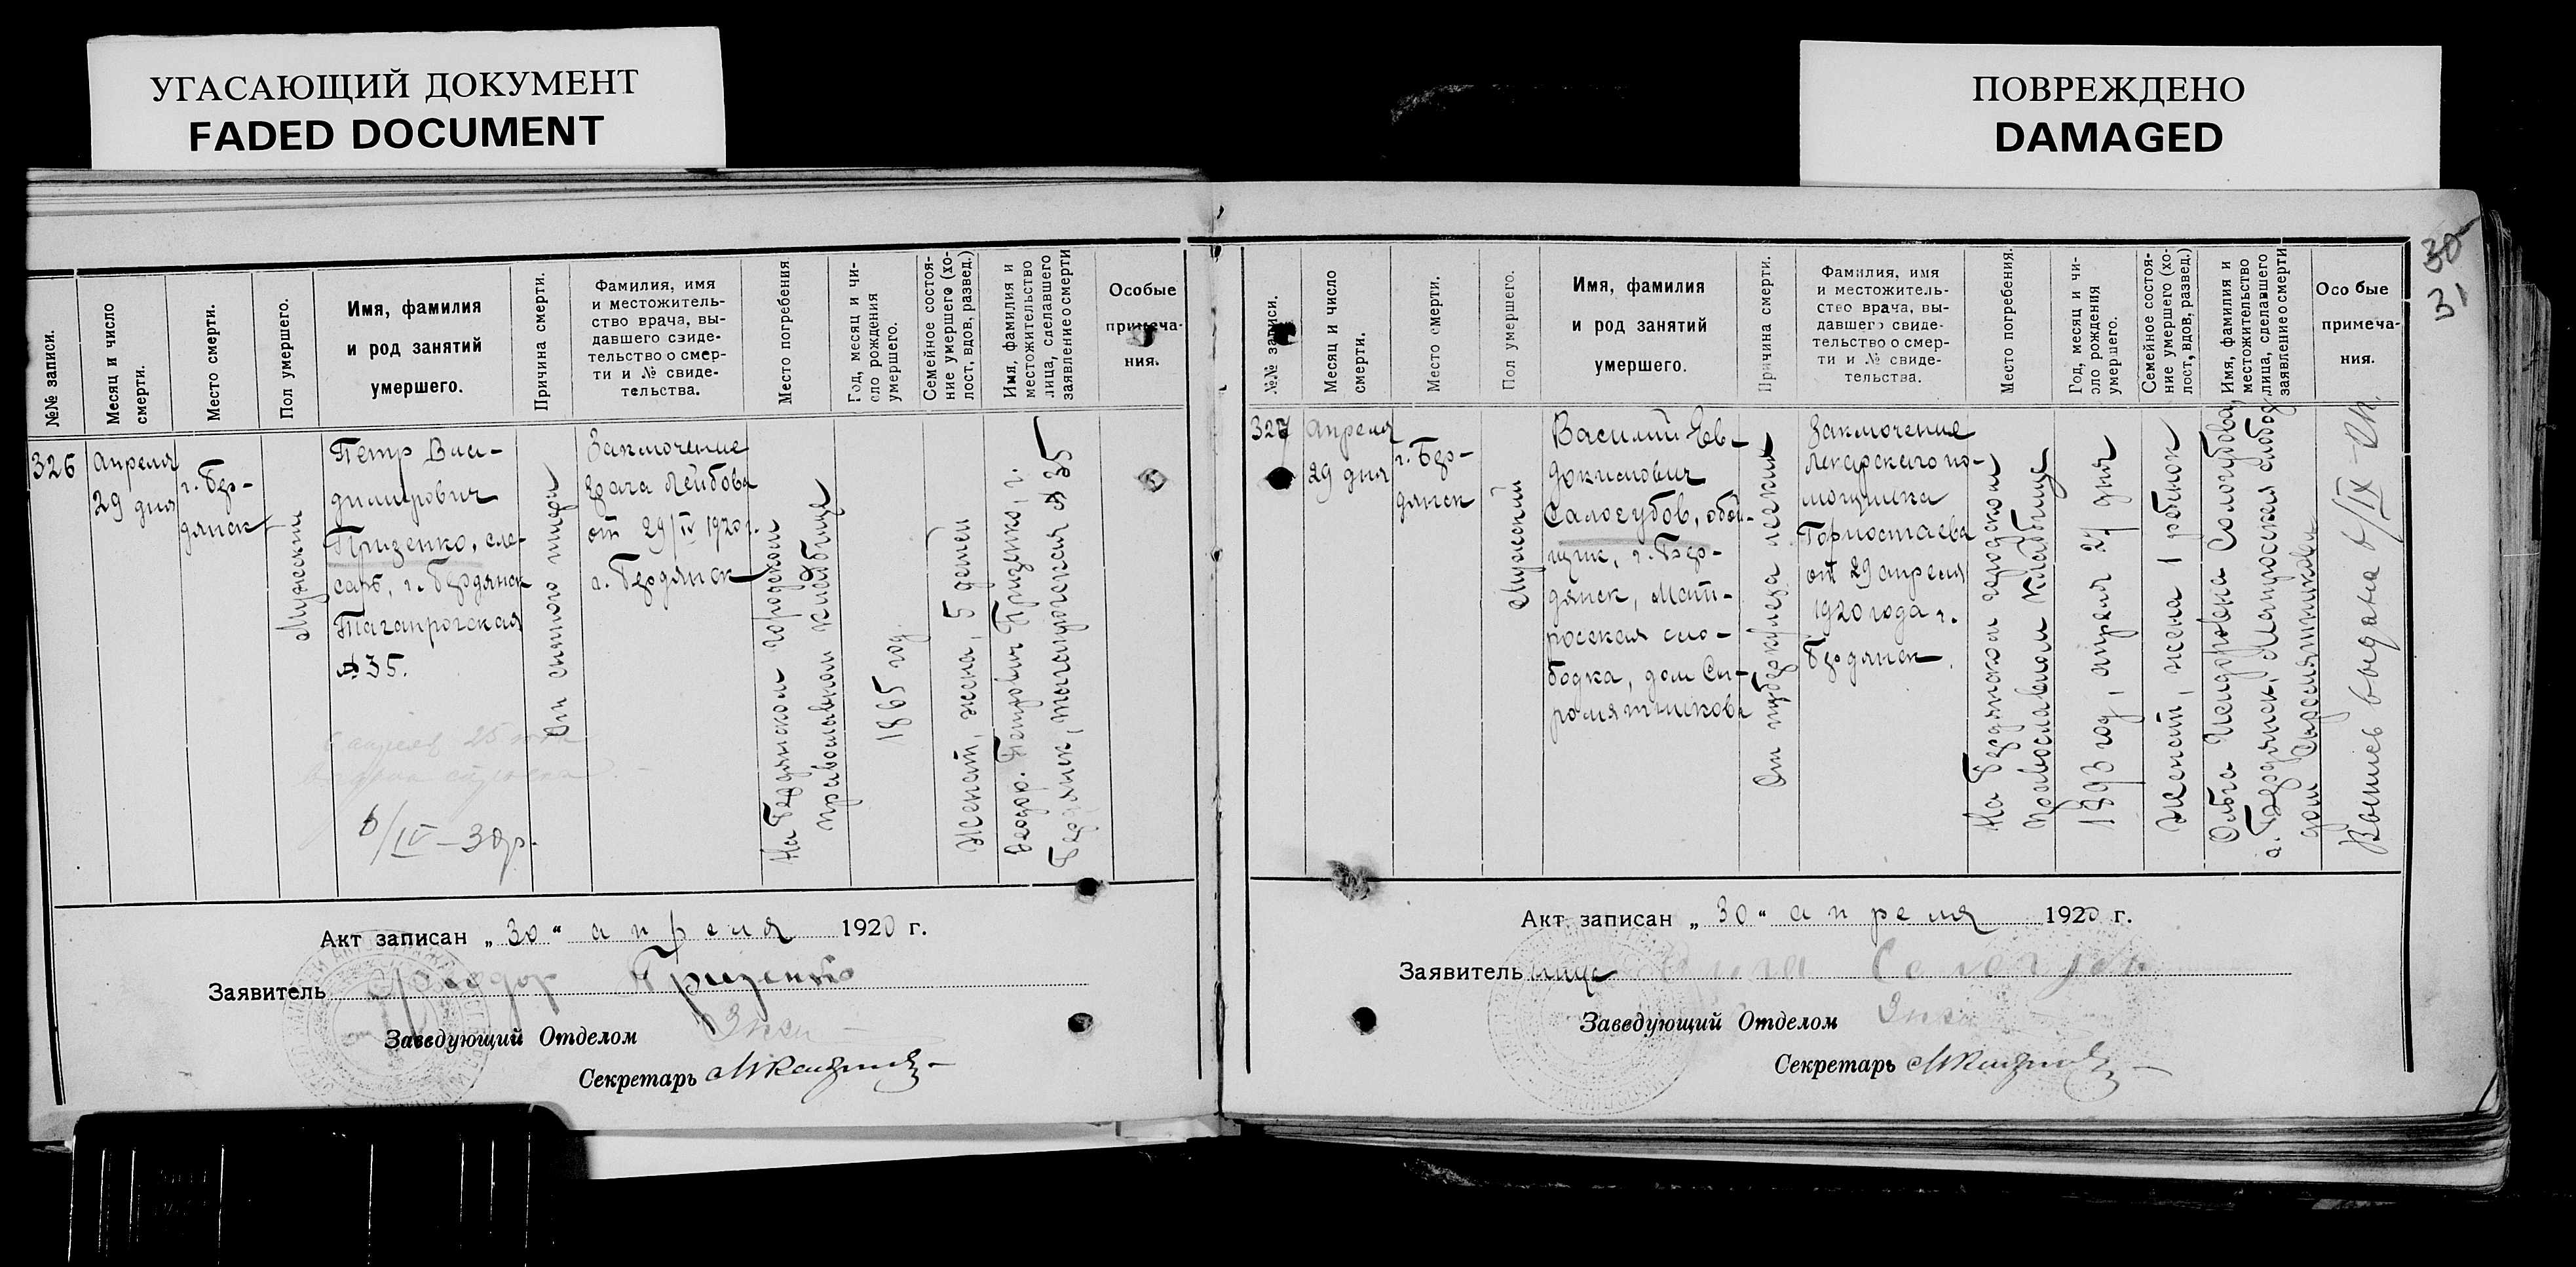 УГАСАЮЩИЙ ДОКУМЕНТ
FADED DOCUMENT
ПОВРЕЖДЕНО
DAMAGED
30
31
№№ записи.
Месяц и число
смерти.
Место смерти.
Пол умершего.
Имя, фамилия
и род занятий
умершего.
Причина смерти.
Фамилия, имя
и местожитель-
ство врача, вы-
давшего свиде-
тельство о смер-
ти и № свиде-
тельства.
Место погребения
Год, месяц и чи-
сло рождения
умершего.
Семейное состоя-
ние умершего (хо-
лост, вдов, развед.)
Имя, фамилия и
местожительство
лица, сделавшего
заявление о смерти
Особые
примеча-
ния.
326
апреля
29 дня
г. Бер-
дянск
Мужеский
Петр Вла-
димирович
Призенко, сле-
сарь, г. Бердянск
Таганрогская
№ 35.
От сыпного тифа
Заключение
врача Лейбова
от 29/IV 1920 г.
г. Бердянск
На Бердянском городском
православном кладбище
1865 год.
Женат, жена, 5 детей
Феодор Петрович Призенко, г.
Бердянск, Таганрогская № 35
6/IV-30р.
Акт записан „30“ апреля 1920 г.
Заявитель Феодор Призенко
Заведующий Отделом
Секретарь
№№ записи.
Месяц и число
смерти.
Место смерти.
Пол умершего.
Имя, фамилия
и род занятий
умершего.
Причина смерти.
Фамилия, имя
и местожитель-
ство врача, вы-
давшего свиде-
тельство о смер-
ти и № свиде-
тельства.
Место погребения.
Год, месяц и чи-
сло рождения
умершего.
Семейное состоя-
ние умершего (хо-
лост, вдов, развед.)
Имя, фамилия и
местожительство
лица, сделавшего
заявление о смерти
Особые
примеча-
ния.
327
апреля
29 дня
г. Бер-
дянск
Мужеский
Василий Ев-
докимович
Салогубов, обой-
щик, г. Бер-
дянск, Мат-
росская сло-
бодка, дом Сы-
ромятникова
От туберкулеза легких
Заключение
лекарского по-
мощника
Горностаева
от 29 апреля
1920 года г.
Бердянск.
На Бердянском городском
православном кладбище
1893 год, апреля 27 дня
Женат, жена 1 ребенок
Ольга Сологубова
г. Бердянск, Матросская слобод
дом Сыромятникова
Выпись выдана 6/IX
Акт записан „30“ апреля 1920 г.
Заявитель
Заведующий Отделом
Секретарь